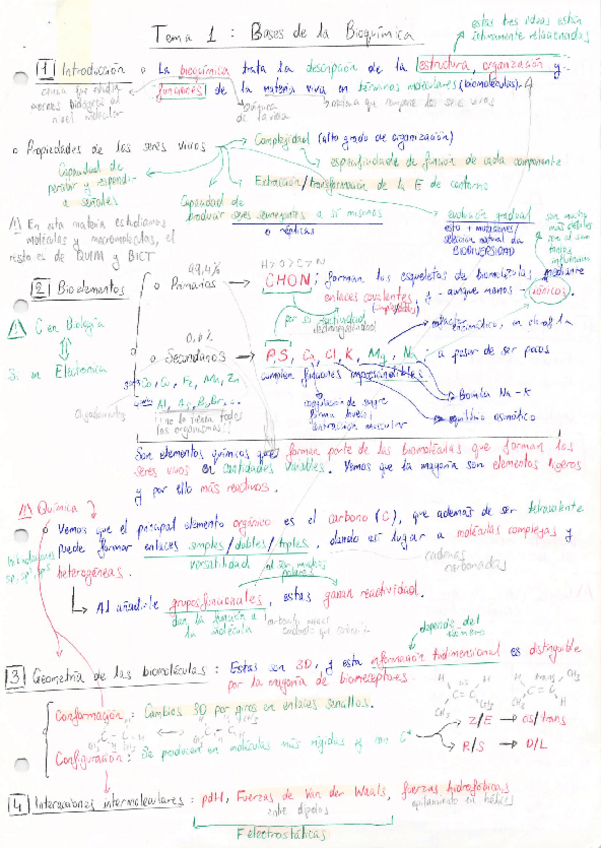 Tema 1 : Bases de la Bioquímica
estas tres ideas están
íntimamente relacionadas
1 Introducción o La bioquímica trata la descripción de la estructura, organización y
funciones de la materia viva en términos moleculares (biomoléculas).
ciencia que estudia
procesos biológicos al
nivel molecular
química
de la vida
o Propiedades de los seres vivos
Complejidad (alto grado de organización)
especificidad de función de cada componente
Extracción/transformación de la E de entorno
Capacidad de
percibir y responder
a señales
Capacidad de
producir seres semejantes a sí mismos
o réplicas
evolución gradual
esto + mutaciones/
selección natural da
BIODIVERSIDAD
/!\ En esta materia estudiamos
moléculas y macromoléculas, el
resto es de QUIM y BICT
2 Bioelementos
99,4%
o Primarios
H > O > C > N
CHON: forman los esqueletos de biomoléculas mediante
enlaces covalentes, y - aunque menos - iónicos.
por su reactividad
electronegatividad
/!\ C en Biología
Si en Electrónica
0,6%
o Secundarios
P, S, Ca, Cl, K, Mg, Na a pesar de ser pocos
cumplen funciones imprescindibles:
Co, Cu, Fe, Mn, Zn
Oligoelementos
Al, As, B, Br, ...
!! no lo tienen todos
los organismos !!
coagulación de sangre
contracción muscular
Bomba Na - K
equilibrio osmótico
Son elementos químicos que forman parte de las biomoléculas que forman los
seres vivos en cantidades variables. Vemos que la mayoría son elementos ligeros
y por ello más reactivos.
/!\ Química
o Vemos que el principal elemento orgánico es el carbono (C), que además de ser tetravalente
puede formar enlaces simples/dobles/triples, dando así lugar a moléculas complejas y
heterogéneas.
versatilidad
cadenas
carbonadas
Al añadirle grupos funcionales, estas ganan reactividad.
dan la función a
la molécula
depende del
3 Geometría de las biomoléculas : Estas son 3D, y esta información tridimensional es distinguible
por la mayoría de biorreceptores.
Conformación : Cambios 3D por giros en enlaces sencillos.
Configuración : Se producen en moléculas más rígidas y con C*
Z/E → cis/trans
R/S → D/L
4 Interacciones intermoleculares : pdH, Fuerzas de Van der Waals, fuerzas hidrofóbicas
entre dipolos
F electrostáticas